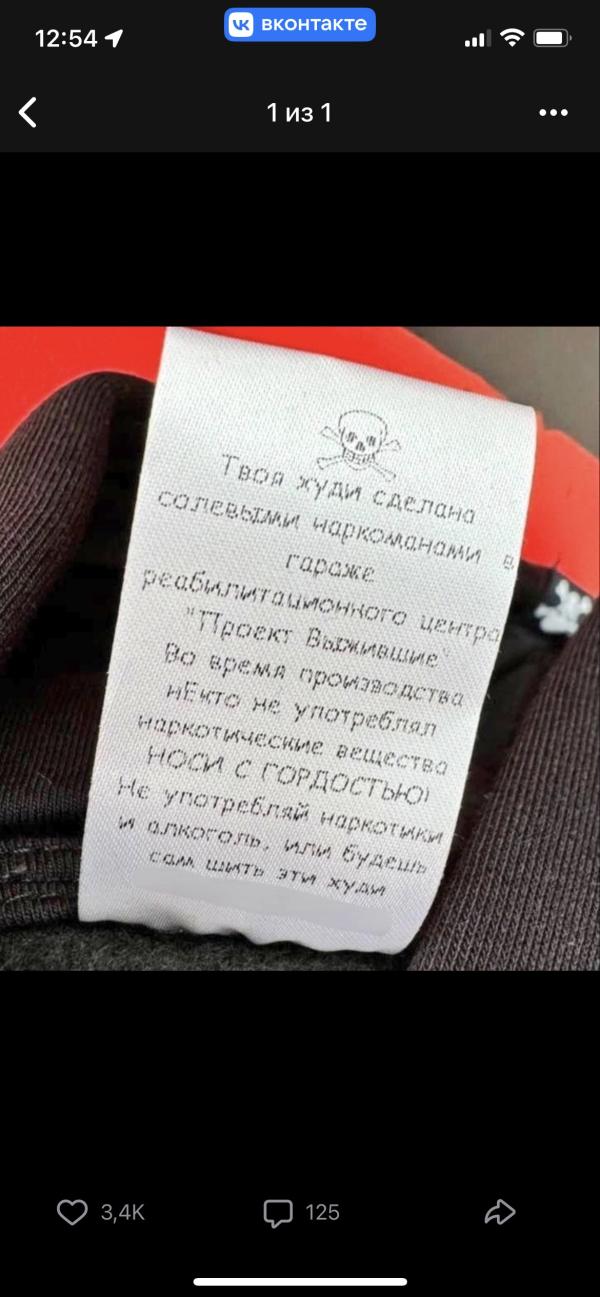 12:54
вконтакте
1 из 1
Твоя худи сделана
солевыми наркоманами в
гараже
реабилитационного центра
"Проект Выжившие"
Во время производства
нЕкто не употреблял
наркотические вещества
НОСИ С ГОРДОСТЬЮ!
Не употребляй наркотики
и алкоголь, или будешь
сам шить эти худи
3,4K
125